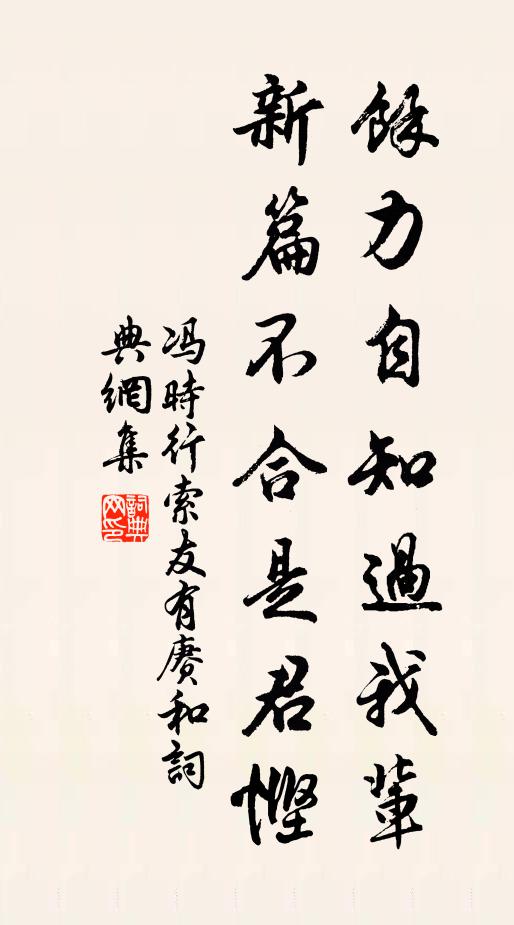 餘力自知過我輩
新篇不合是君慳
冯時行索友有赓和詞
典網集
詞典網印